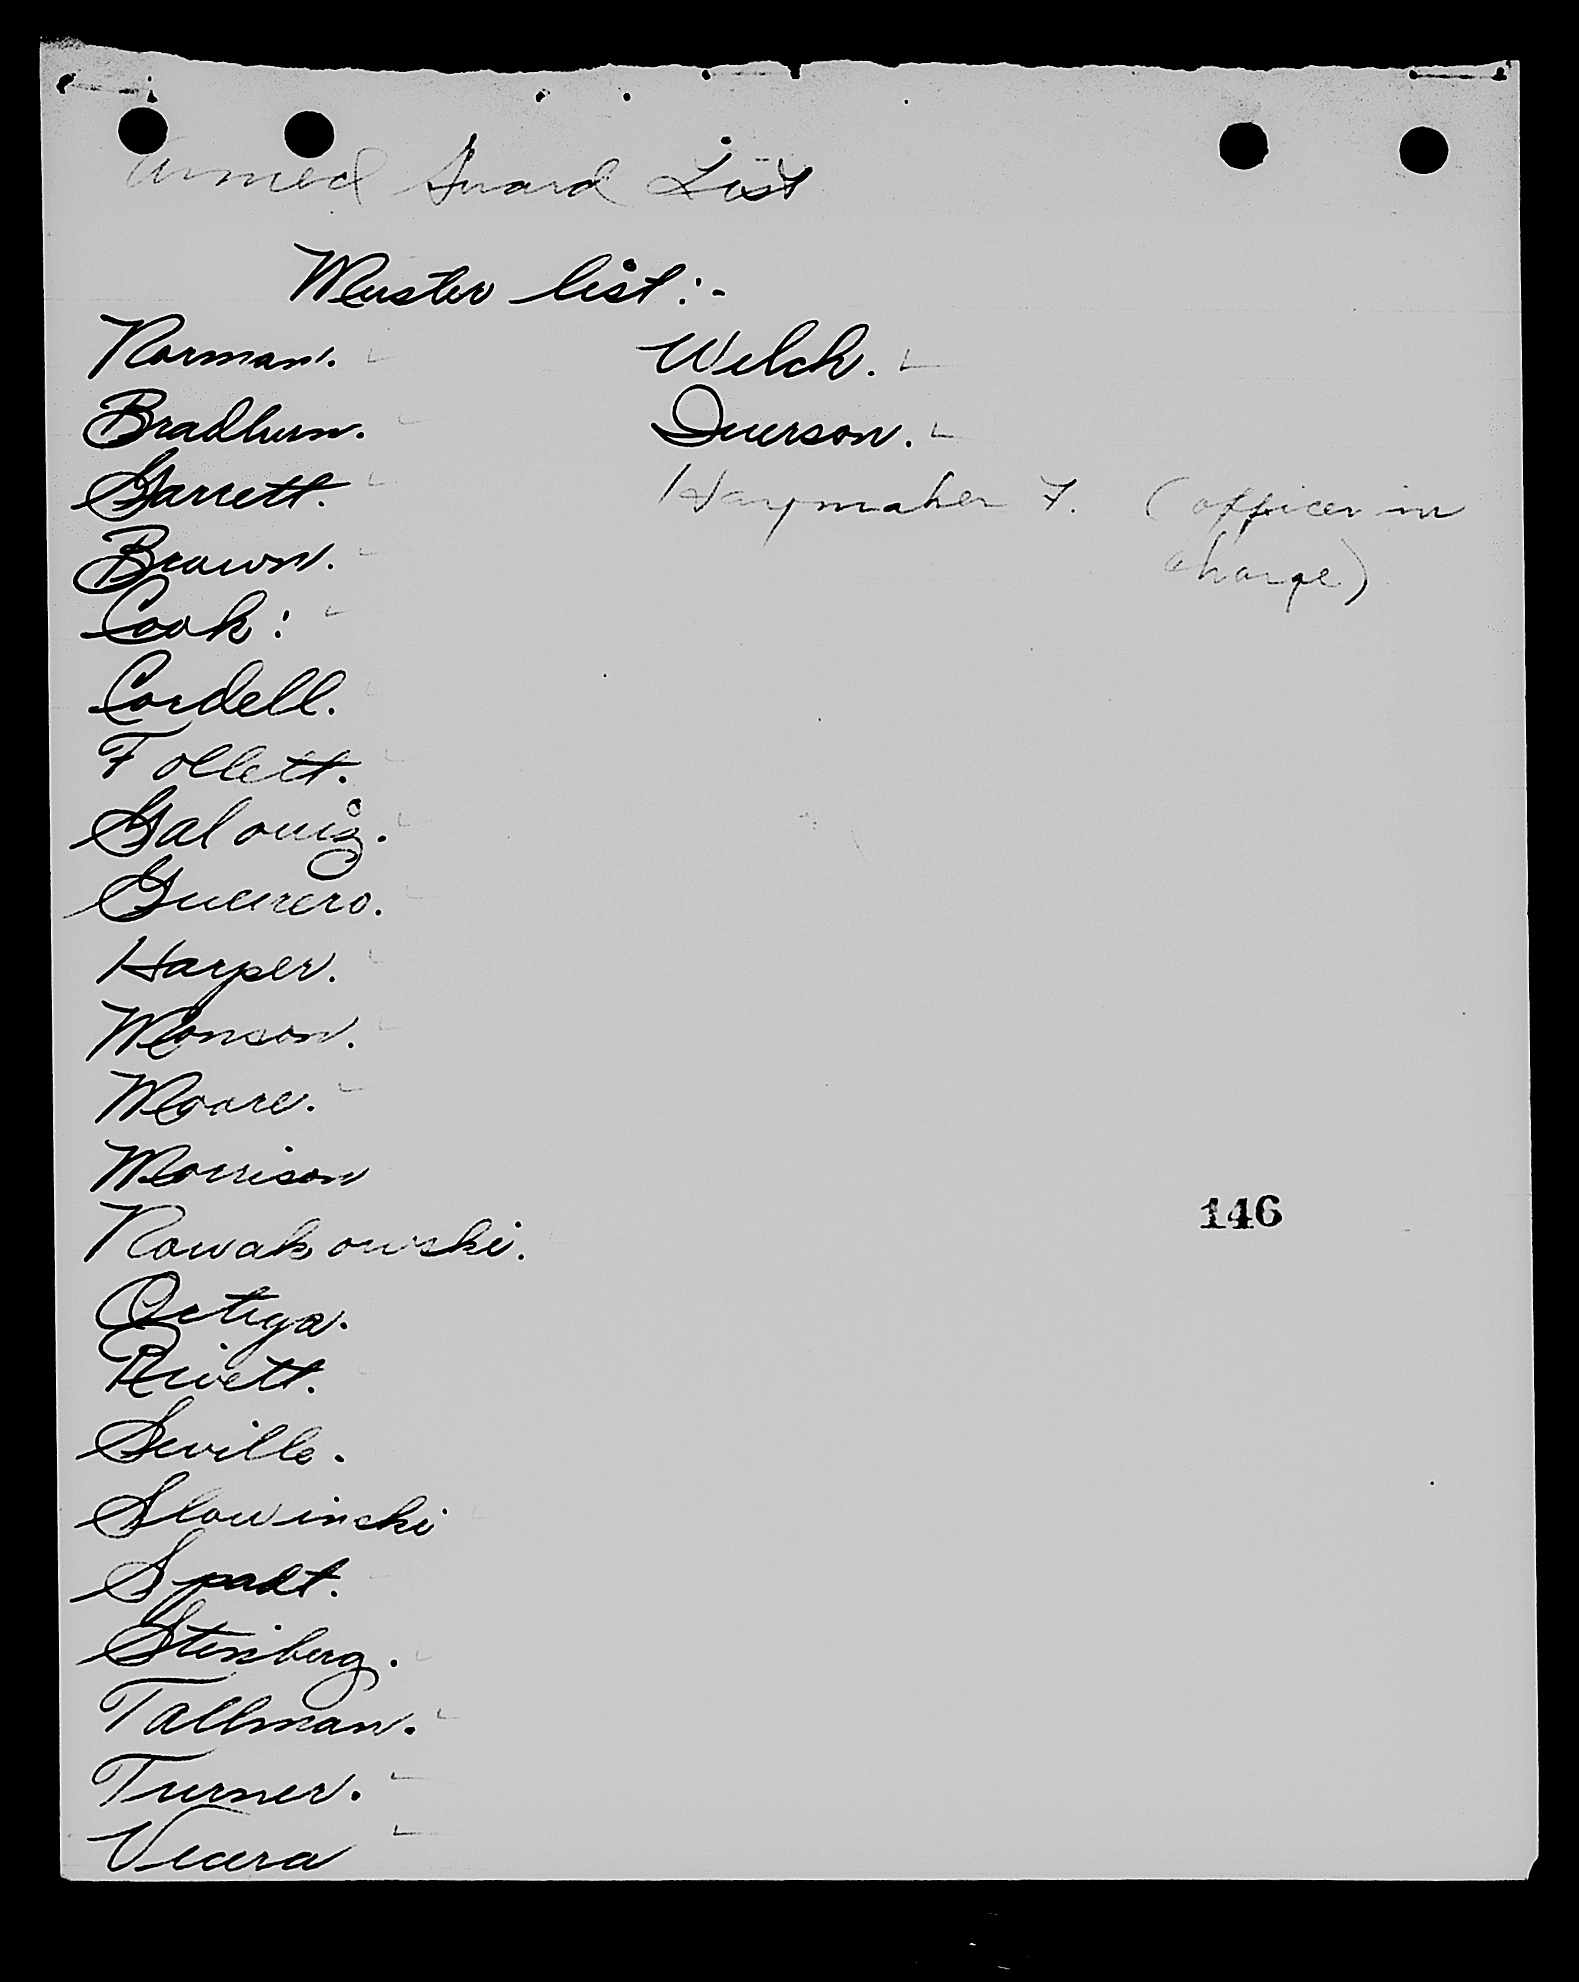 Armed Guard List
Muster list:-
Norman.
Bradburn.
Garrett.
Brown.
Cook:
Cordell.
Follett.
Galouiz.
Guerrero.
Harper.
Monson.
Moore.
Morrison
Nowakowski.
Ortega.
Rivett.
Seville.
Slowinski
Spadt.
Steinberg.
Tallman.
Turner.
Vecera
Welch.
Duerson.
Haymaker F. (officer in
charge)
146